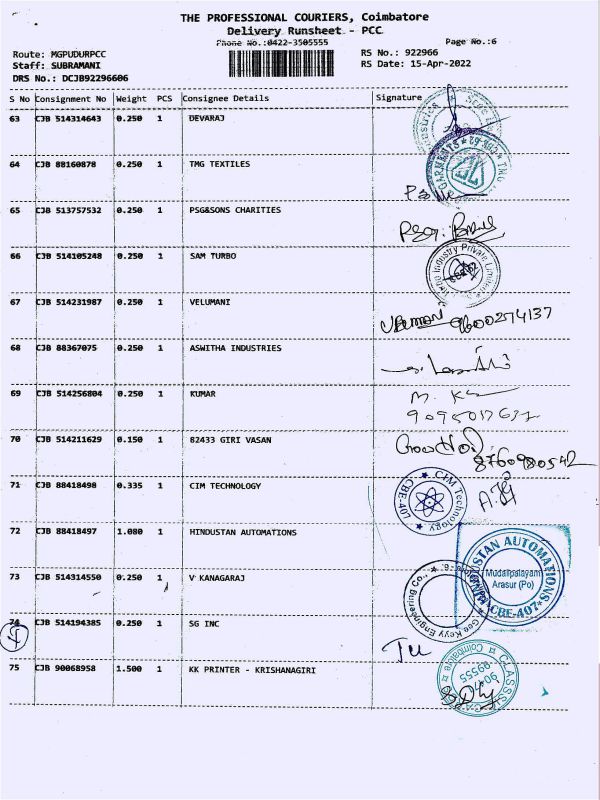 THE PROFESSIONAL COURIERS, Coimbatore
Delivery Runsheet - PCC
Phone No.:0422-3505555 Page No.:6
Route: MGPUDURPCC RS No.: 922966
Staff: SUBRAMANI RS Date: 15-Apr-2022
DRS No.: DCJB92296606
S No Consignment No Weight PCS Consignee Details Signature
63 CJB 514314643 0.250 1 DEVARAJ
64 CJB 88160878 0.250 1 TMG TEXTILES
65 CJB 513757532 0.250 1 PSG&SONS CHARITIES
66 CJB 514105248 0.250 1 SAM TURBO
67 CJB 514231987 0.250 1 VELUMANI
9600274137
68 CJB 88367075 0.250 1 ASWITHA INDUSTRIES
69 CJB 514256804 0.250 1 KUMAR
70 CJB 514211629 0.150 1 82433 GIRI VASAN
8760980542
71 CJB 88418498 0.335 1 CIM TECHNOLOGY
CIM Technology CBE-407
72 CJB 88418497 1.080 1 HINDUSTAN AUTOMATIONS
HINDUSTAN AUTOMATIONS
Mudalipalayam
Arasur (Po)
CBE-407
73 CJB 514314550 0.250 1 V KANAGARAJ
74 CJB 514194385 0.250 1 SG INC
75 CJB 90068958 1.500 1 KK PRINTER - KRISHANAGIRI